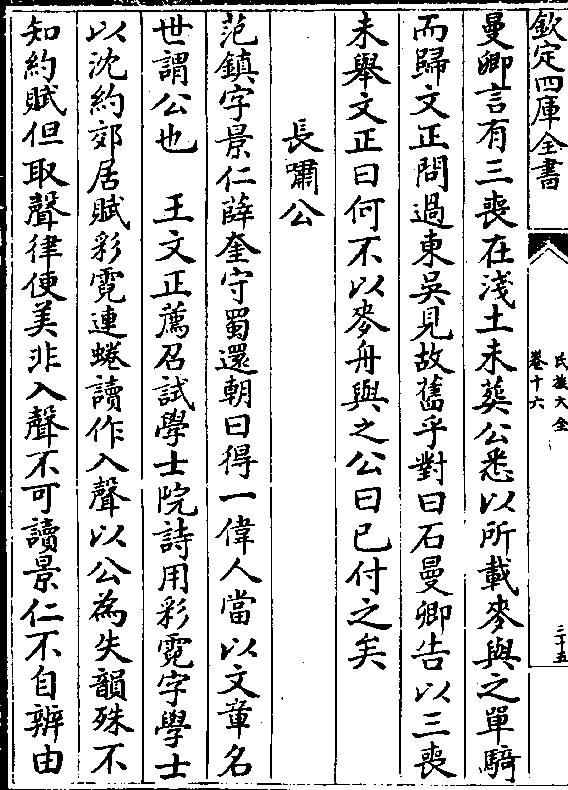 欽定四庫全書
氏族大全
卷十六
三十五
曼卿言有三喪在淺土未葬公悉以所載麥與之單騎
而歸文正問過東吳見故舊乎對曰石曼卿告以三喪
未舉文正曰何不以麥舟與之公曰已付之矣
長嘯公
范鎮字景仁薛奎守蜀還朝曰得一偉人當以文章名
世謂公也　王文正薦召試學士院詩用彩霓字學士
以沈約郊居賦彩霓連蜷讀作入聲以公為失韻殊不
知約賦但取聲律便美非入聲不可讀景仁不自辨由